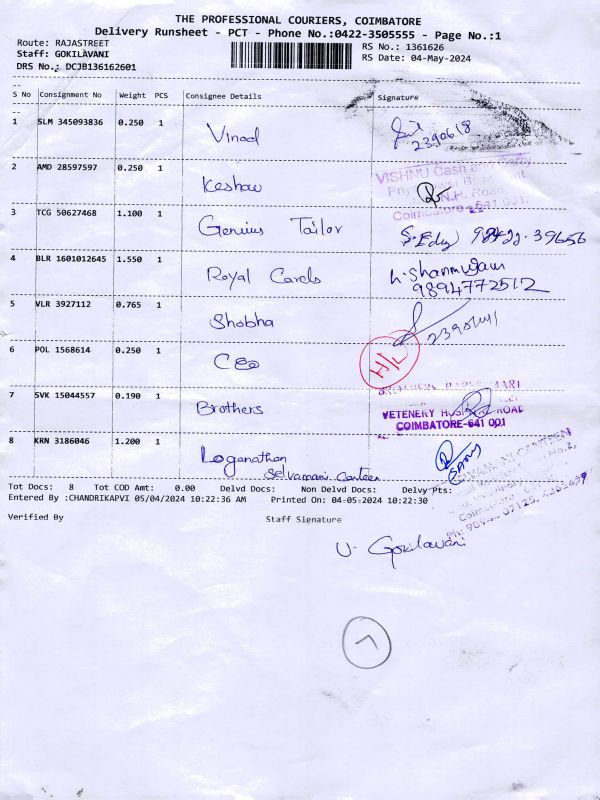 THE PROFESSIONAL COURIERS, COIMBATORE
Delivery Runsheet - PCT - Phone No.:0422-3505555 - Page No.:1
Route: RAJASTREET
RS No.: 1361626
Staff: GOKILAVANI
RS Date: 04-May-2024
DRS No.: DCJB136162601
S No Consignment No Weight PCS Consignee Details Signature
1 SLM 345093836 0.250 1 Vinod 2390618
2 AMD 28597597 0.250 1 Keshav
VISHNU Cash
Coimbatore 641 001.
3 TCG 50627468 1.100 1 Genius Tailor
4 BLR 1601012645 1.550 1 Royal Cards h. Shanmugam
9894772512
5 VLR 3927112 0.765 1 Shobha
6 POL 1568614 0.250 1 CEO H/L
7 SVK 15044557 0.190 1 Brothers
VETENERY HOSPITAL ROAD
COIMBATORE-641 001
8 KRN 3186046 1.200 1 Loganathan
Selvamani Canteen
Tot Docs: 8 Tot COD Amt: 0.00 Delvd Docs: Non Delvd Docs: Delvy Pts:
Entered By :CHANDRIKAPVI 05/04/2024 10:22:36 AM Printed On: 04-05-2024 10:22:30
Verified By Staff Signature
V. Gokilavani